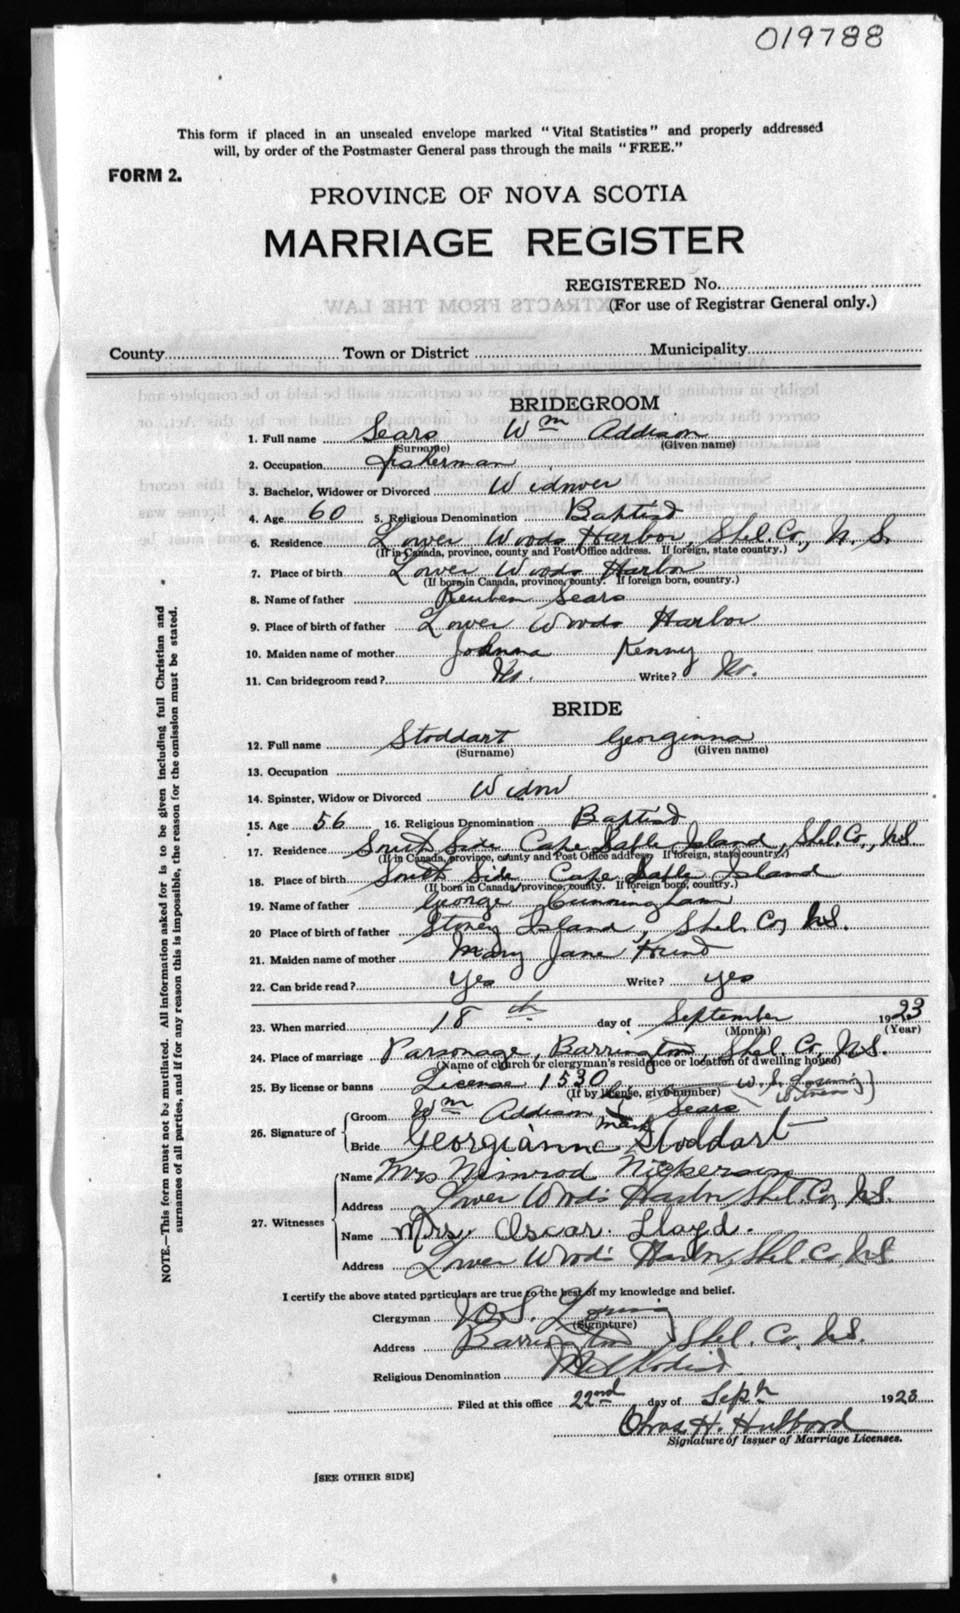 019788
This form if placed in an unsealed envelope marked "Vital Statistics" and properly addressed
will, by order of the Postmaster General pass through the mails "FREE."
FORM 2.
PROVINCE OF NOVA SCOTIA
MARRIAGE REGISTER
REGISTERED No.
(For use of Registrar General only.)
County Town or District Municipality
BRIDEGROOM
1. Full name Sears Wm Addison
(Surname) (Given name)
2. Occupation fisherman
3. Bachelor, Widower or Divorced Widower
4. Age 60 5. Religious Denomination Baptist
6. Residence Lower Woods Harbor, Shel. Co., N. S.
(If in Canada, province, county and Post Office address. If foreign, state country.)
7. Place of birth Lower Woods Harbor
(If born in Canada, province, county. If foreign born, country.)
8. Name of father Reuben Sears
9. Place of birth of father Lower Woods Harbor
10. Maiden name of mother Johnna Kenny
11. Can bridegroom read? No. Write? No.
BRIDE
12. Full name Stoddart Georginna
(Surname) (Given name)
13. Occupation
14. Spinster, Widow or Divorced Widow
15. Age 56 16. Religious Denomination Baptist
17. Residence South Side Cape Sable Island, Shel. Co., N.S.
(If in Canada, province, county and Post Office address. If foreign, state country.)
18. Place of birth South Side Cape Sable Island
(If born in Canada, province, county. If foreign born, country.)
19. Name of father George Cunningham
20 Place of birth of father Stoney Island, Shel. Co, N.S.
21. Maiden name of mother Mary Jane
22. Can bride read? Yes Write? yes
23. When married 18th day of September 1923
(Month) (Year)
24. Place of marriage Parsonage, Barrington, Shel. Co, N.S.
(Name of church or clergyman's residence or location of dwelling house)
25. By license or banns License 1530 W. S.
(If by license, give number) Witness
26. Signature of
Groom Wm Addison Sears
mark
Bride Georgianna Stoddart
27. Witnesses
Name Mrs Nimrod Nickerson
Address Lower Wood's Harbor, Shel. Co, N.S.
Name Mrs Oscar Lloyd.
Address Lower Wood's Harbor, Shel. Co, N.S.
I certify the above stated particulars are true to the best of my knowledge and belief.
Clergyman W. S.
(Signature)
Address Barrington, Shel. Co. N.S.
Religious Denomination Methodist
Filed at this office 22nd day of Sept 1923
Chas H. Hubbard
Signature of Issuer of Marriage Licenses.
[SEE OTHER SIDE]
NOTE.—This form must not be mutilated. All information asked for is to be given including full Christian and
surnames of all parties, and if for any reason this is impossible, the reason for the omission must be stated.